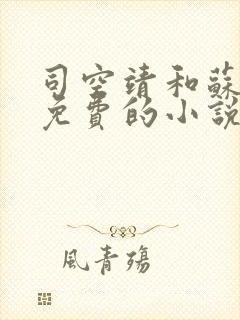 司空靖和蘇
免費的小說
風青殤